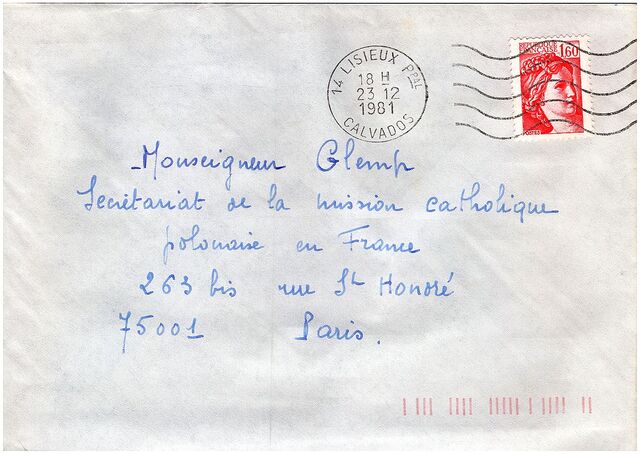 14 LISIEUX PPAL
18 H
23 12
1981
CALVADOS
REPUBLIQUE
FRANCAISE
1,60
POSTES
Monseigneur Glemp
Secrétariat de la mission catholique
polonaise en France
263 bis rue St Honoré
75001 Paris.